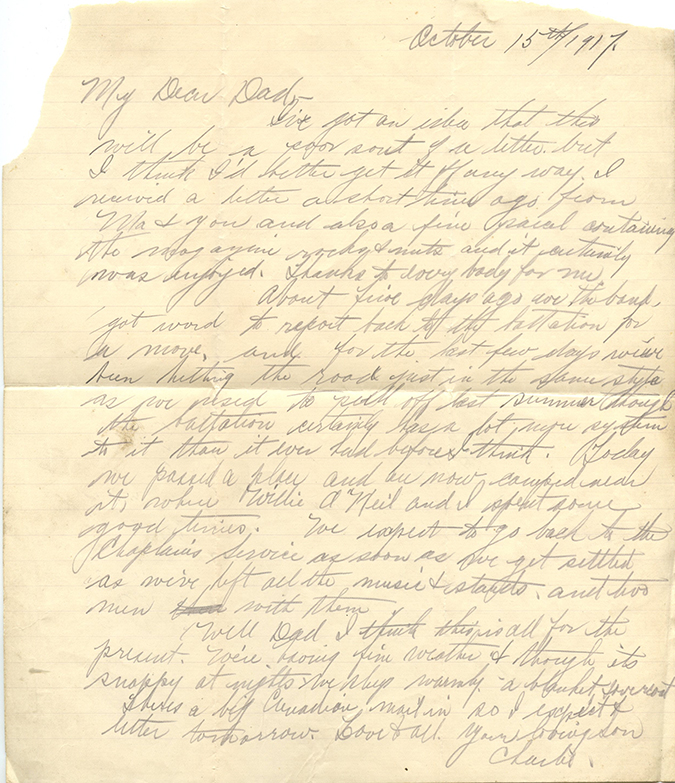 October 15th/1917.
My Dear Dad,-
I've got an idea that this
will be a poor sort of a letter but
I think I'd better get it off any way. I
received a letter a short time ago from
Ma & you and also a fine parcel containing
the magazine rocks & nuts and it certainly
was enjoyed. Thanks to every body for me,
About five days ago we the band,
got word to report back to the battalion for
a move, and for the last few days we've
been hitting the road just in the same style
as we used to last summer though
the battalion certainly has a lot more system
to it than it ever had before I think. Today
we passed a place and are now camped near
it, where Willie O'Neil and I spent some
good times. We expect to go back to the
Chaplain's service as soon as we get settled
as we've left all the music & stands and two
men with them
Well Dad I think this is all for the
present. We're having fine weather & though its
snappy at nights we sleep warmly - a blanket & overcoat
Theres a big Canadian mail in so I expect a
letter tomorrow. Love to all. Your loving son
Charlie.